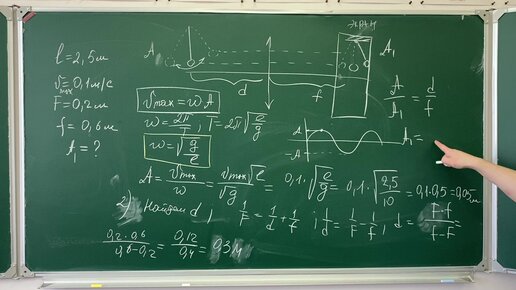 l = 2,5 м
v max = 0,1 м/с
F = 0,2 м
f = 0,6 м
A₁ = ?
A
d
f
экран
A₁
A/A₁ = d/f
v max = ωA
ω = 2π/T, T = 2π√(l/g)
ω = √(g/l)
A
-A
A₁ =
A = v max/ω = v max √l/√g = 0,1 · √(l/g) = 0,1 · √(2,5/10) = 0,1 · 0,5 = 0,05 м
2) Найдём d, 1/F = 1/d + 1/f ; 1/d = 1/F - 1/f, d = F·f/f-F =
0,2 · 0,6/0,6-0,2 = 0,12/0,4 = 0,3 м